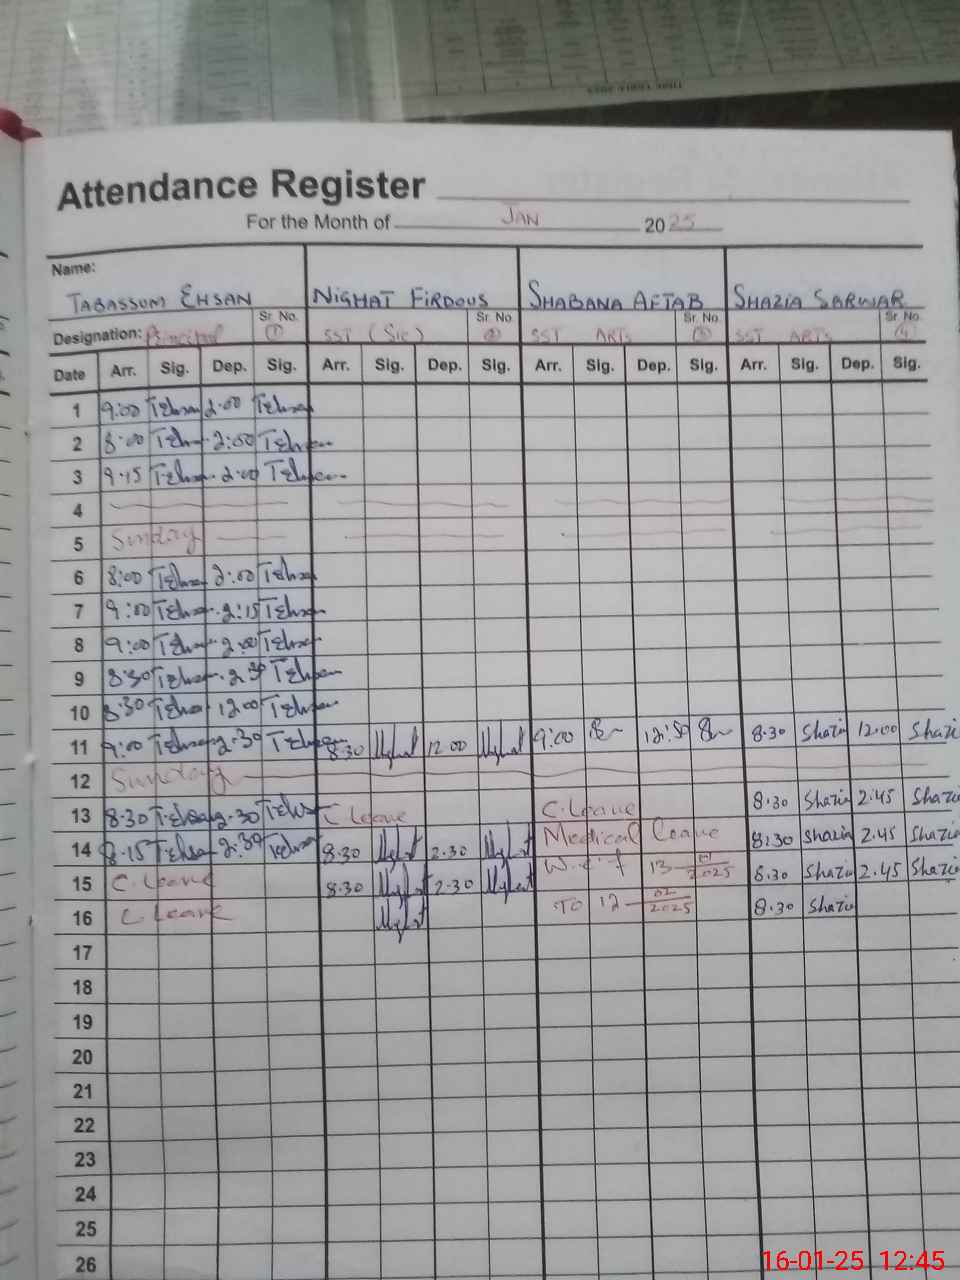 Attendance Register
For the Month of JAN 2025
Name:
TABASSUM EHSAN NIGHAT FIRDOUS SHABANA AFTAB SHAZIA SARWAR
Designation: Principal Sr. No. 1 SST (Sic) Sr. No. 2 SST ARTs Sr. No. 3 SST ARTs Sr. No. 4
Date Arr. Sig. Dep. Sig. Arr. Sig. Dep. Sig. Arr. Sig. Dep. Sig. Arr. Sig. Dep. Sig.
1 9:00 TEhsan 2.00 TEhsan
2 8:00 2:00
3 9.15 TEhsan 2.00 TEhsan
4
5 Sunday
6 8:00 TEhsan 2:00 TEhsan
7 9:00 TEhsan 2:15 TEhsan
8 9:00 TEhsan 2.00 TEhsan
9 8:30 TEhsan 2.30 TEhsan
10 8:30 TEhsan 12.00 TEhsan
11 9:00 TEhsan 2.30 TEhsan 8.30 12.00 9:00 12:50 8.30 Shazia 12.00 Shazi
12 Sunday
13 8.30 TEhsan 2.30 C Leave C. Leave 8.30 Shazia 2.45 Shazi
14 8.15 TEhsan 2:30 8.30 2.30 Medical Leave 8:30 Shazia 2.45 Shazi
15 C. Leave 8.30 2.30 W.e.f 13-01-2025 8.30 Shazia 2.45 Shazi
16 C Leave TO 12-02-2025 8.30 Shazia
17
18
19
20
21
22
23
24
25
26
16-01-25 12:45